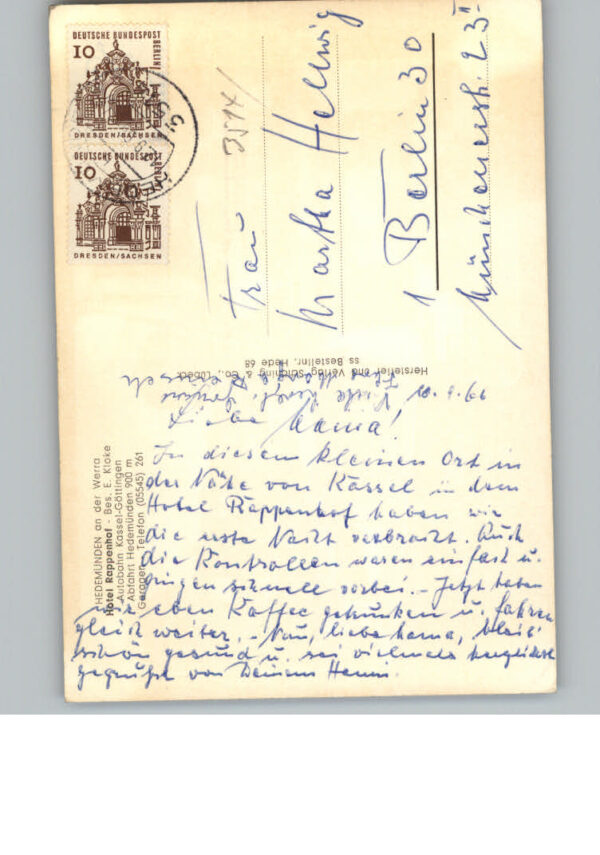 DEUTSCHE BUNDESPOST
BERLIN
10
DRESDEN/SACHSEN
DEUTSCHE BUNDESPOST
BERLIN
10
DRESDEN/SACHSEN
3514/
Frau
Martha Hellwig
1 Berlin 30
Münchenerstr. 23 II
Hersteller und Verlag Schöning & Co., Lübeck
ss Bestellnr. Hede 68
HEDEMÜNDEN an der Werra
Hotel Rappenhof - Bes. E. Kloke
Autobahn Kassel-Göttingen
Abfahrt Hedemünden 900 m
Garagen, Telefon (05545) 261
10.9.66
Liebe Mama!
In diesem kleinen Ort in
der Nähe von Kassel in dem
Hotel Rappenhof haben wir
die erste Nacht verbracht. Auch
die Kontrollen waren einfach u.
gingen schnell vorbei. - Jetzt haben
wir eben Kaffee getrunken u. fahren
gleich weiter. - Nun, liebe Mama, bleib
schön gesund u. sei vielmals herzlichst
gegrüßt von Deinem